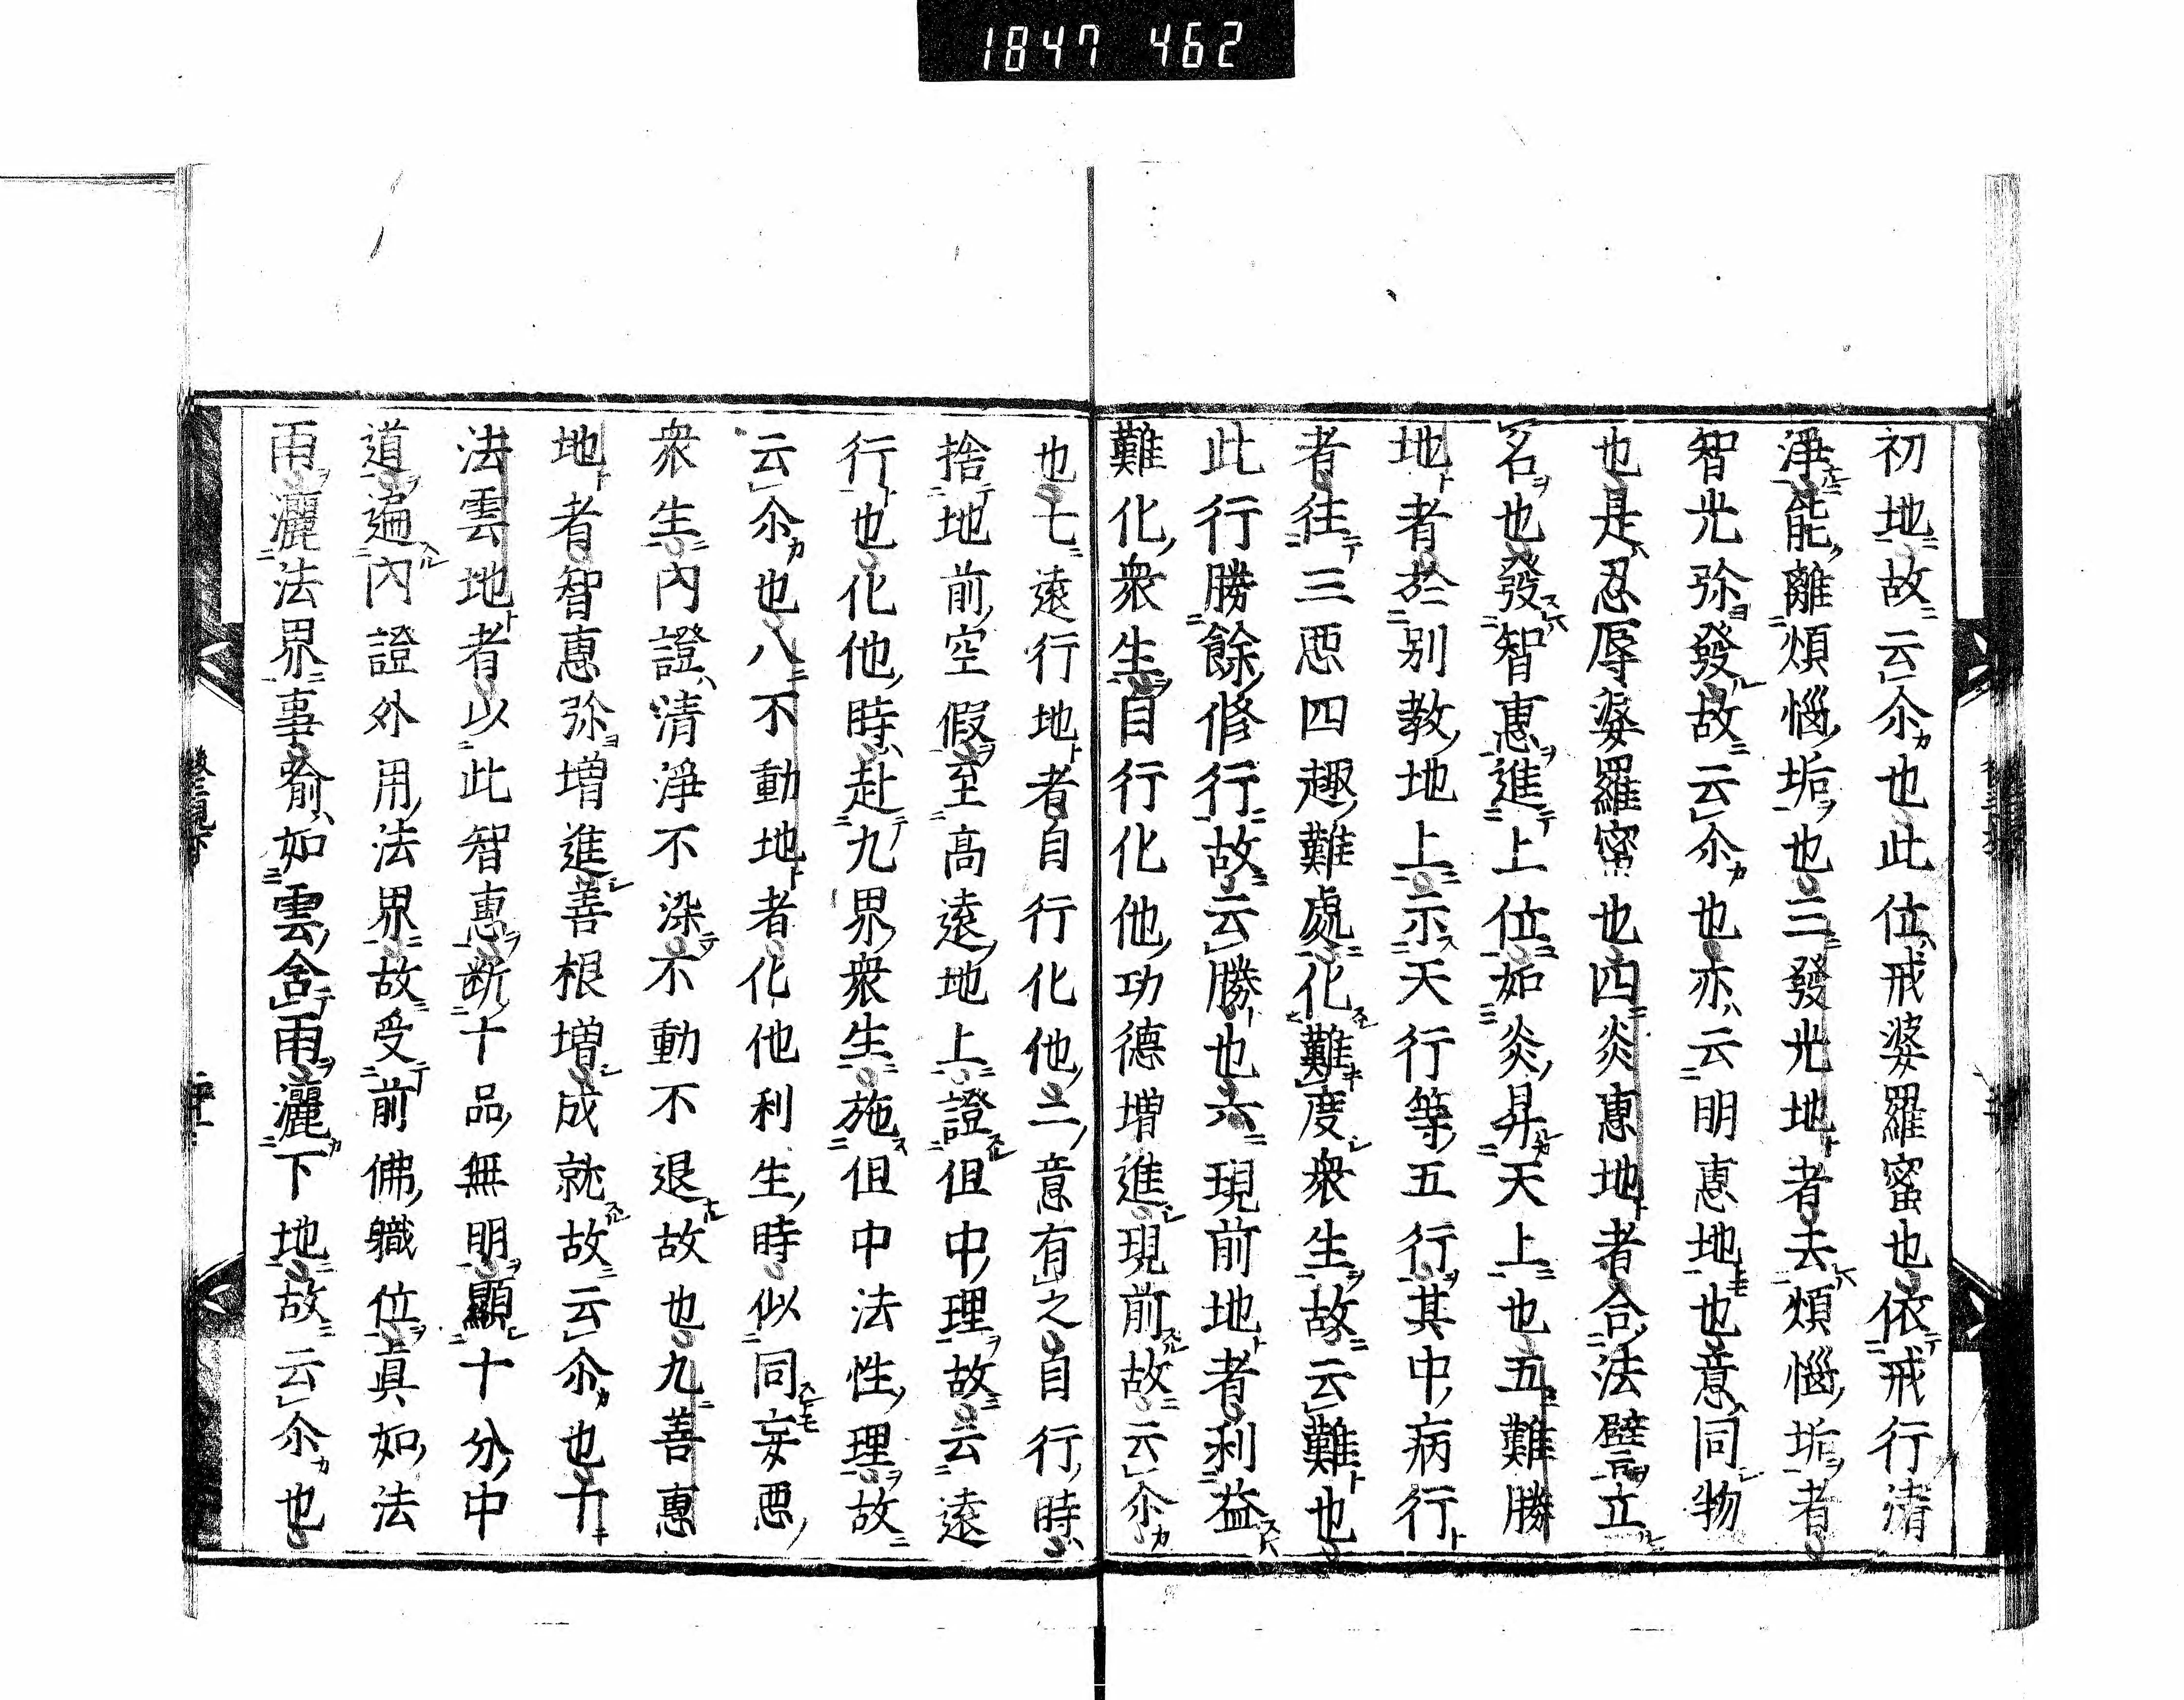 1847 462
初地故云尒也此位戒婆羅蜜也依戒行清
淨能離煩惱垢也三發光地者去煩惱垢者
智光弥發故云尒也亦云明惠地也意同物
也是忍辱婆羅蜜也四炎惠地者合法譬立
名也發智惠進上位如炎昇天上也五難勝
地者於別教地上示天行等五行其中病行
者往三惡四趣難處化難度衆生故云難也
此行勝餘修行故云勝也六現前地者利益
難化衆生自行化他功德增進現前故云尒
也七遠行地者自行化他二意有之自行時
捨地前空假至高遠地上證但中理故云遠
行也化他時赴九界衆生施但中法性理故
云尒也八不動地者化他利生時似同妄惡
衆生內證清淨不染不動不退故也九善惠
地者智惠弥增進善根增成就故云尒也十
法雲地者以此智惠斷十品無明顯十分中
道遍內證外用法界故受前佛職位眞如法
雨灑法界事喻如雲含雨灑下地故云尒也